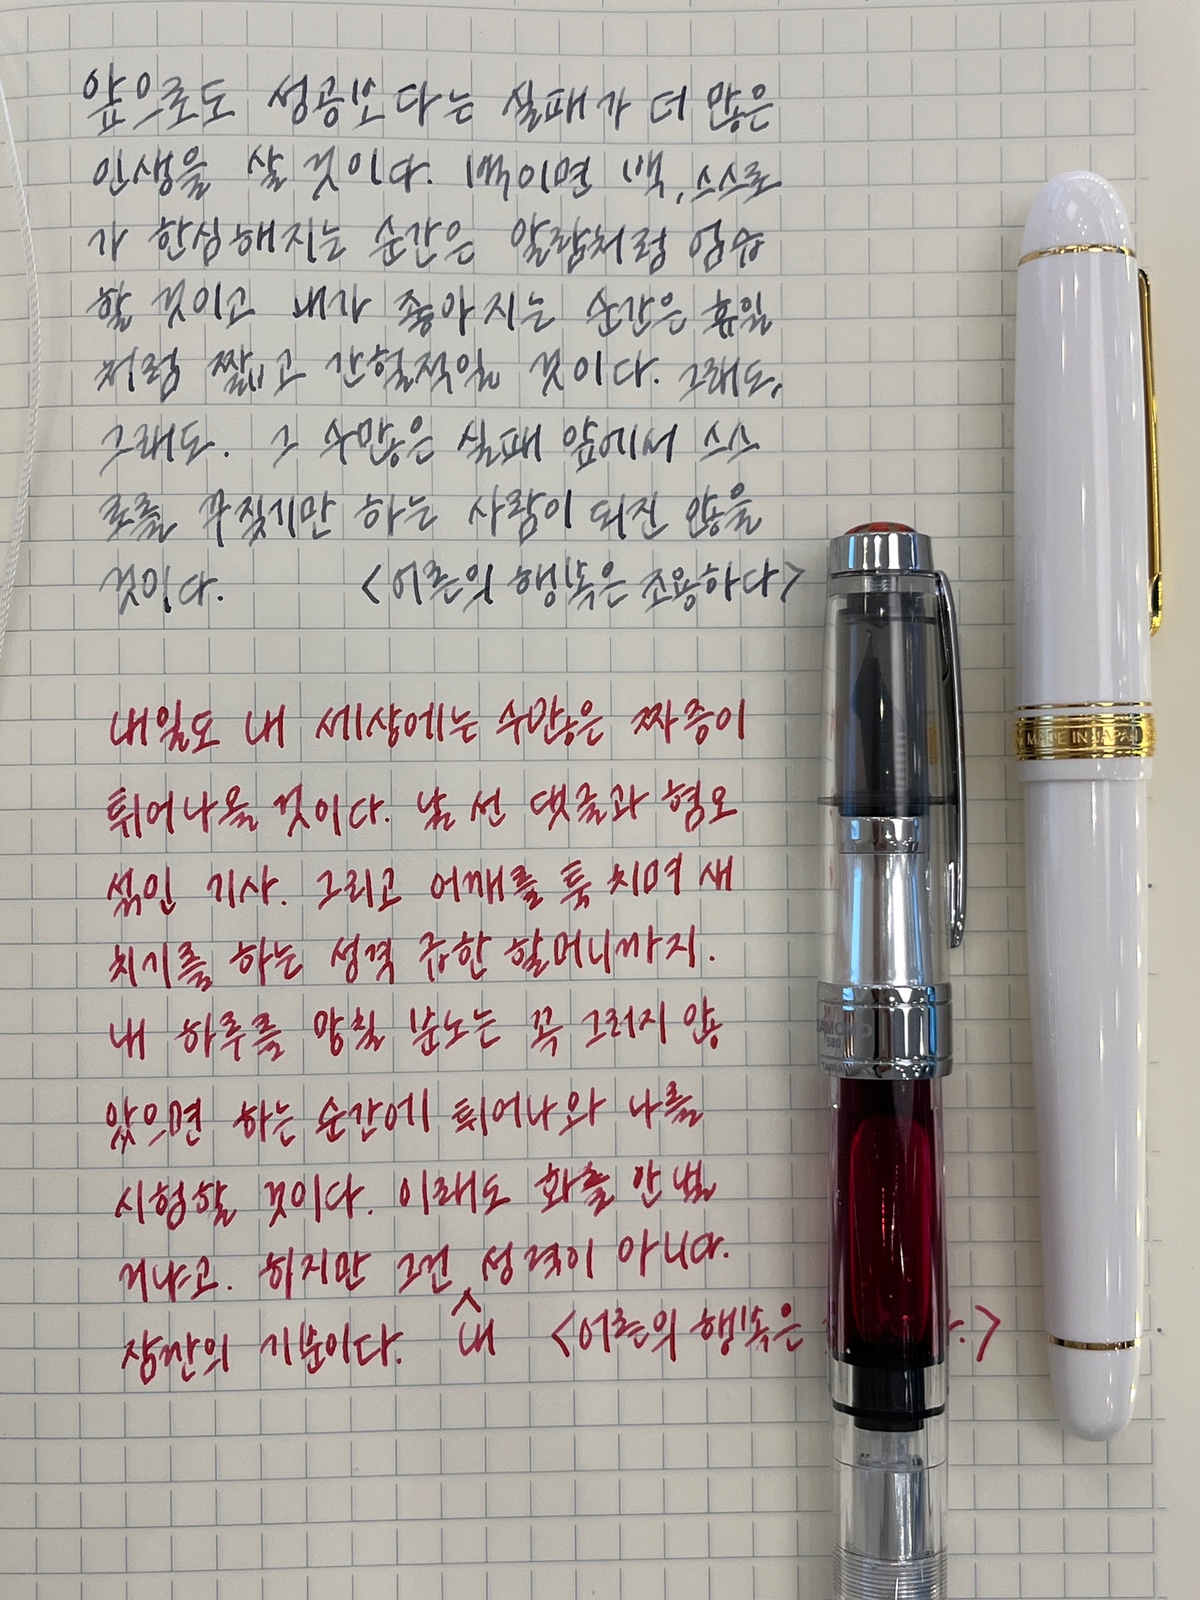 앞으로도 성공보다는 실패가 더 많은
인생을 살 것이다. 백이면 백, 스스로
가 한심해지는 순간은 알람처럼 엄습
할 것이고 내가 좋아지는 순간은 휴일
처럼 짧고 간헐적일 것이다. 그래도,
그래도. 그 수많은 실패 앞에서 스스
로를 꾸짖기만 하는 사람이 되진 않을
것이다. <어른의 행복은 조용하다>
내일도 내 세상에는 수많은 짜증이
튀어나올 것이다. 날 선 댓글과 혐오
섞인 기사. 그리고 어깨를 툭 치며 새
치기를 하는 성격 급한 할머니까지.
내 하루를 망칠 분노는 꼭 그러지 않
았으면 하는 순간에 튀어나와 나를
시험할 것이다. 이래도 화를 안 낼
거냐고. 하지만 그건 성격이 아니다.
잠깐의 기분이다. 내 <어른의 행복은 다.>
MADE IN JAPAN
DIAMOND
580
TAIWAN